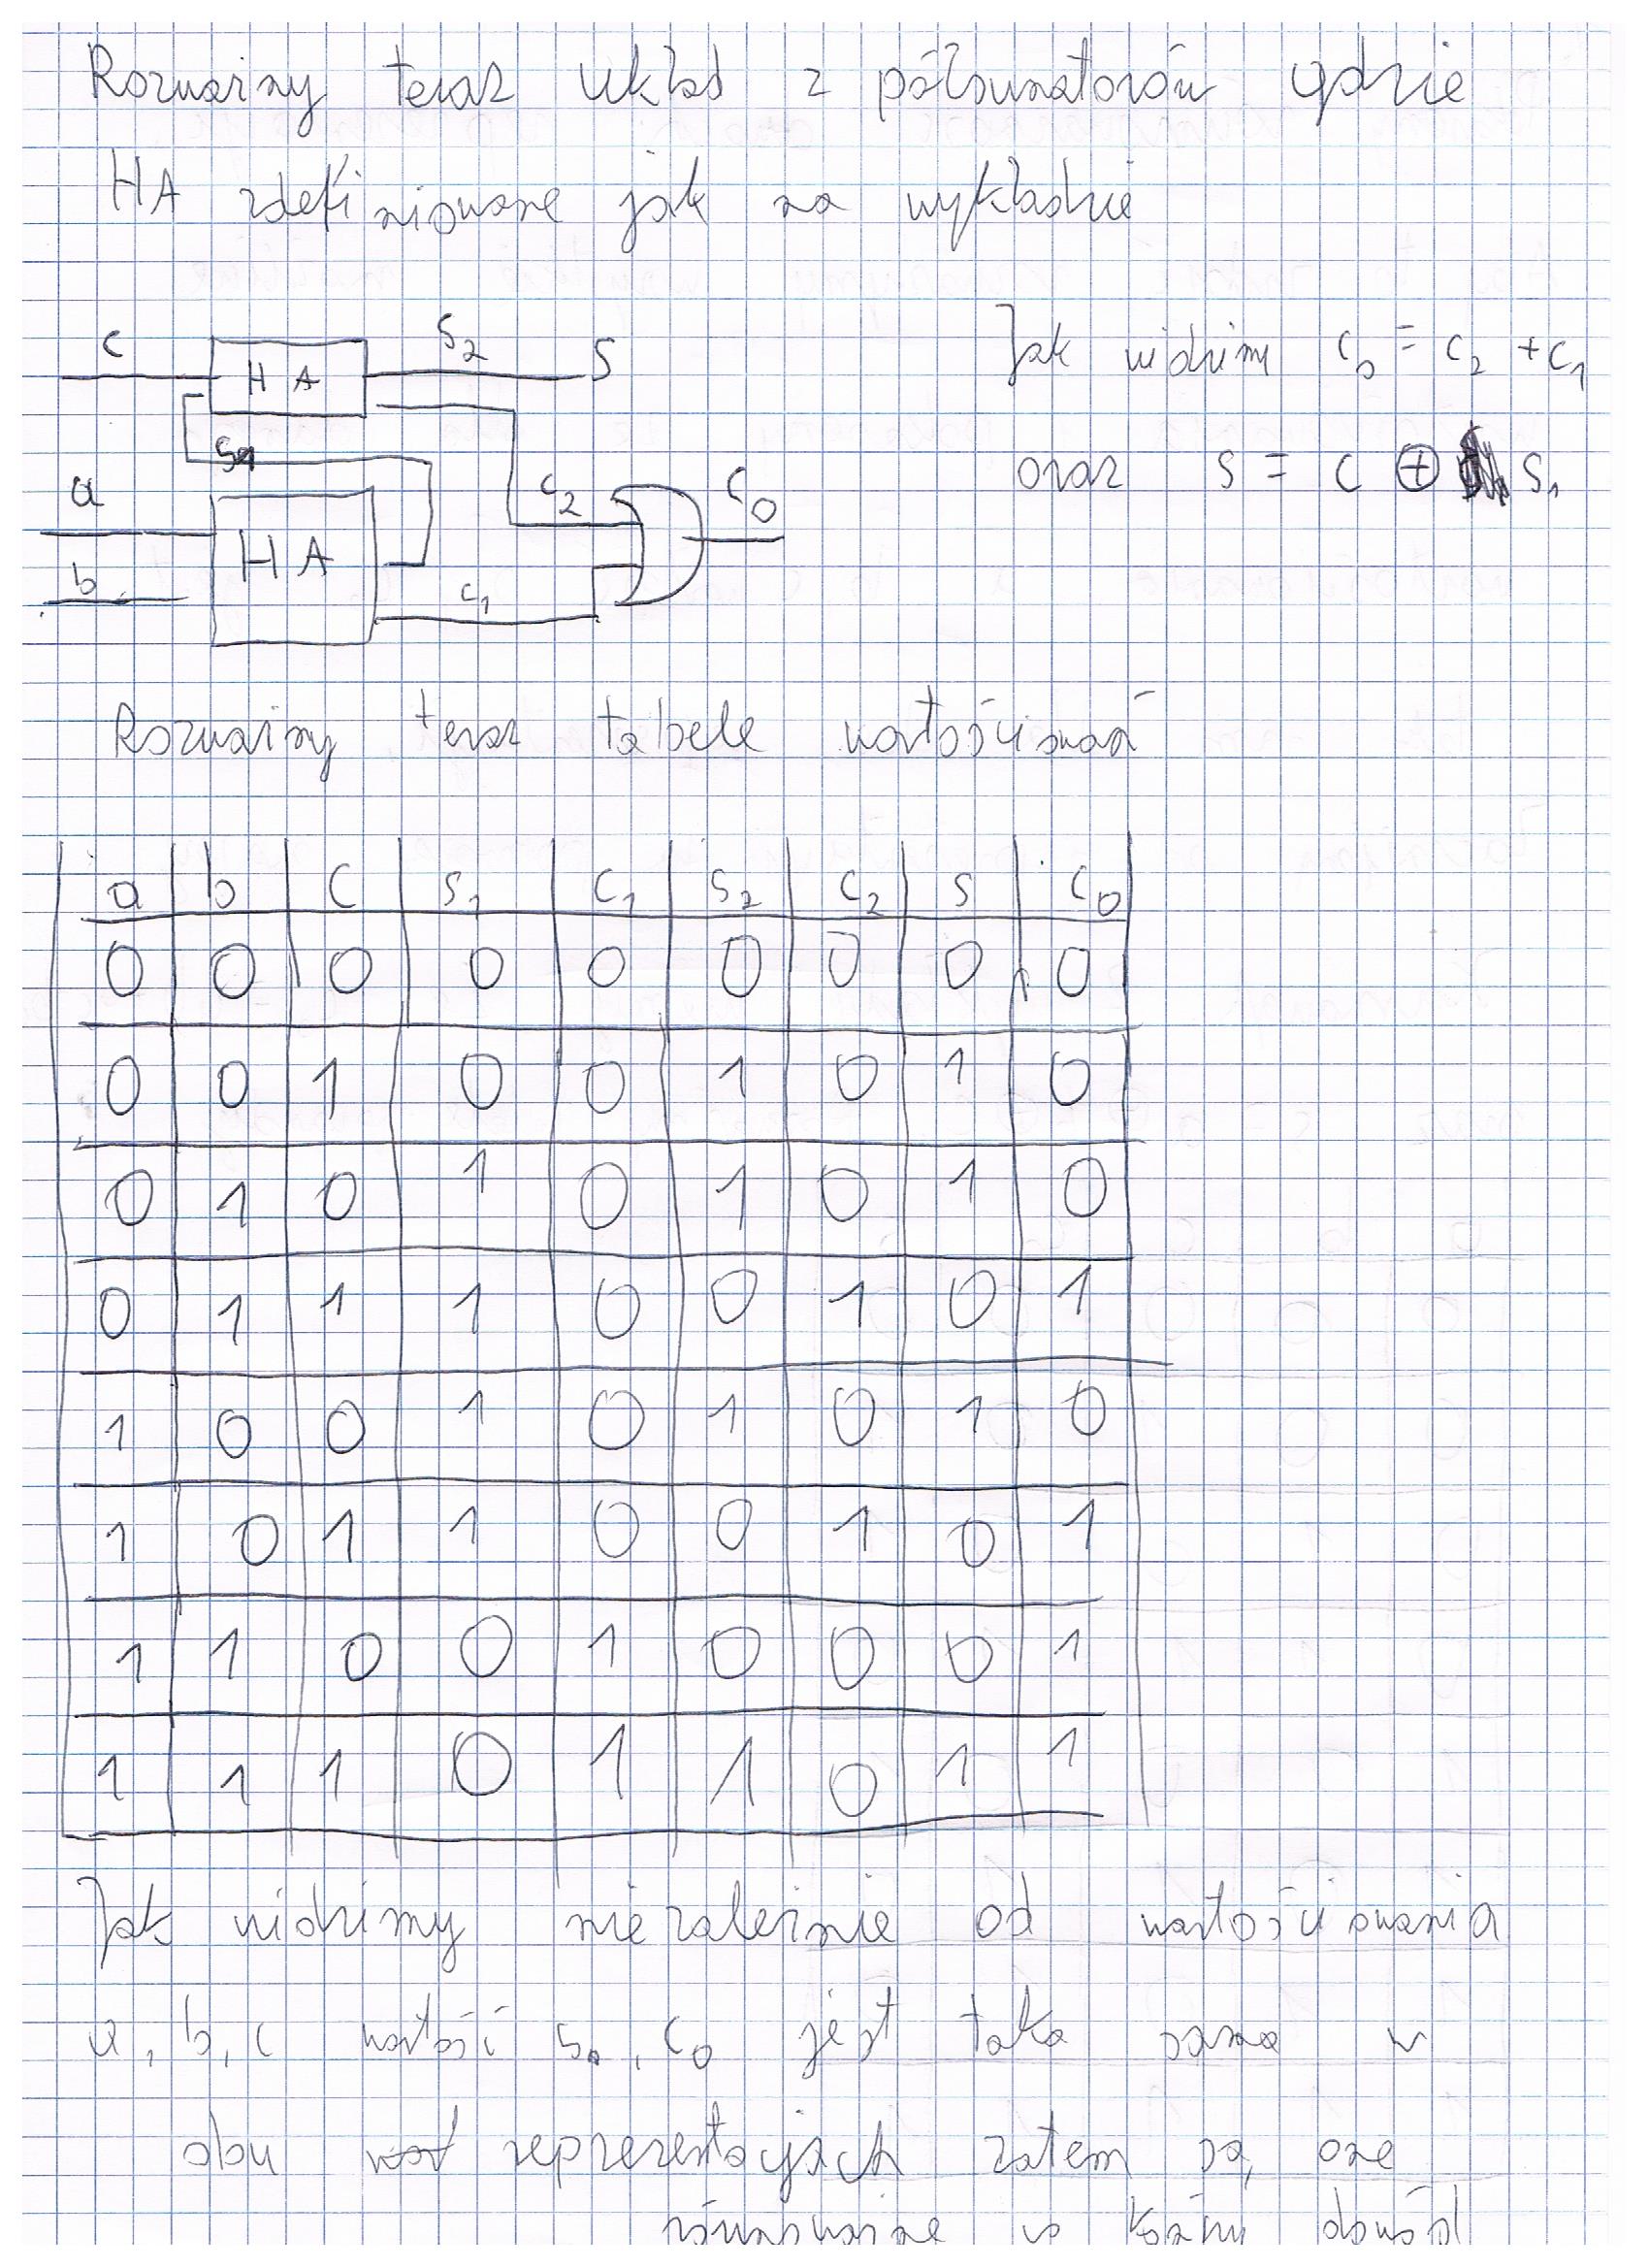 Rozważmy teraz układ z półsumatorów gdzie
HA zdefiniowane jak na wykładzie
c HA s2 S
s1
a b HA c1 c2 c0
Jak widzimy c0 = c2 + c1
oraz s = c ⊕ s1
Rozważmy teraz tabele wartościowań
a b c s1 c1 s2 c2 s c0
0 0 0 0 0 0 0 0 0
0 0 1 0 0 1 0 1 0
0 1 0 1 0 1 0 1 0
0 1 1 1 0 0 1 0 1
1 0 0 1 0 1 0 1 0
1 0 1 1 0 0 1 0 1
1 1 0 0 1 0 0 0 1
1 1 1 0 1 1 0 1 1
Jak widzimy niezależnie od wartościowania
a, b, c wartość s, c0 jest taka sama w
obu reprezentacjach zatem są one
równoważne co kończy dowód